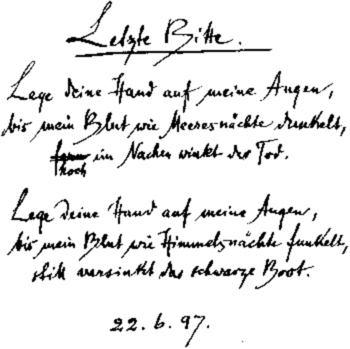 Letzte Bitte.
Lege deine Hand auf meine Augen,
bis mein Blut wie Meeresnächte dunkelt,
fern im Nachen winkt der Tod.
noch
Lege deine Hand auf meine Augen,
bis mein Blut wie Himmelsnächte funkelt,
still versinkt das schwarze Boot.
22. 6. 97.